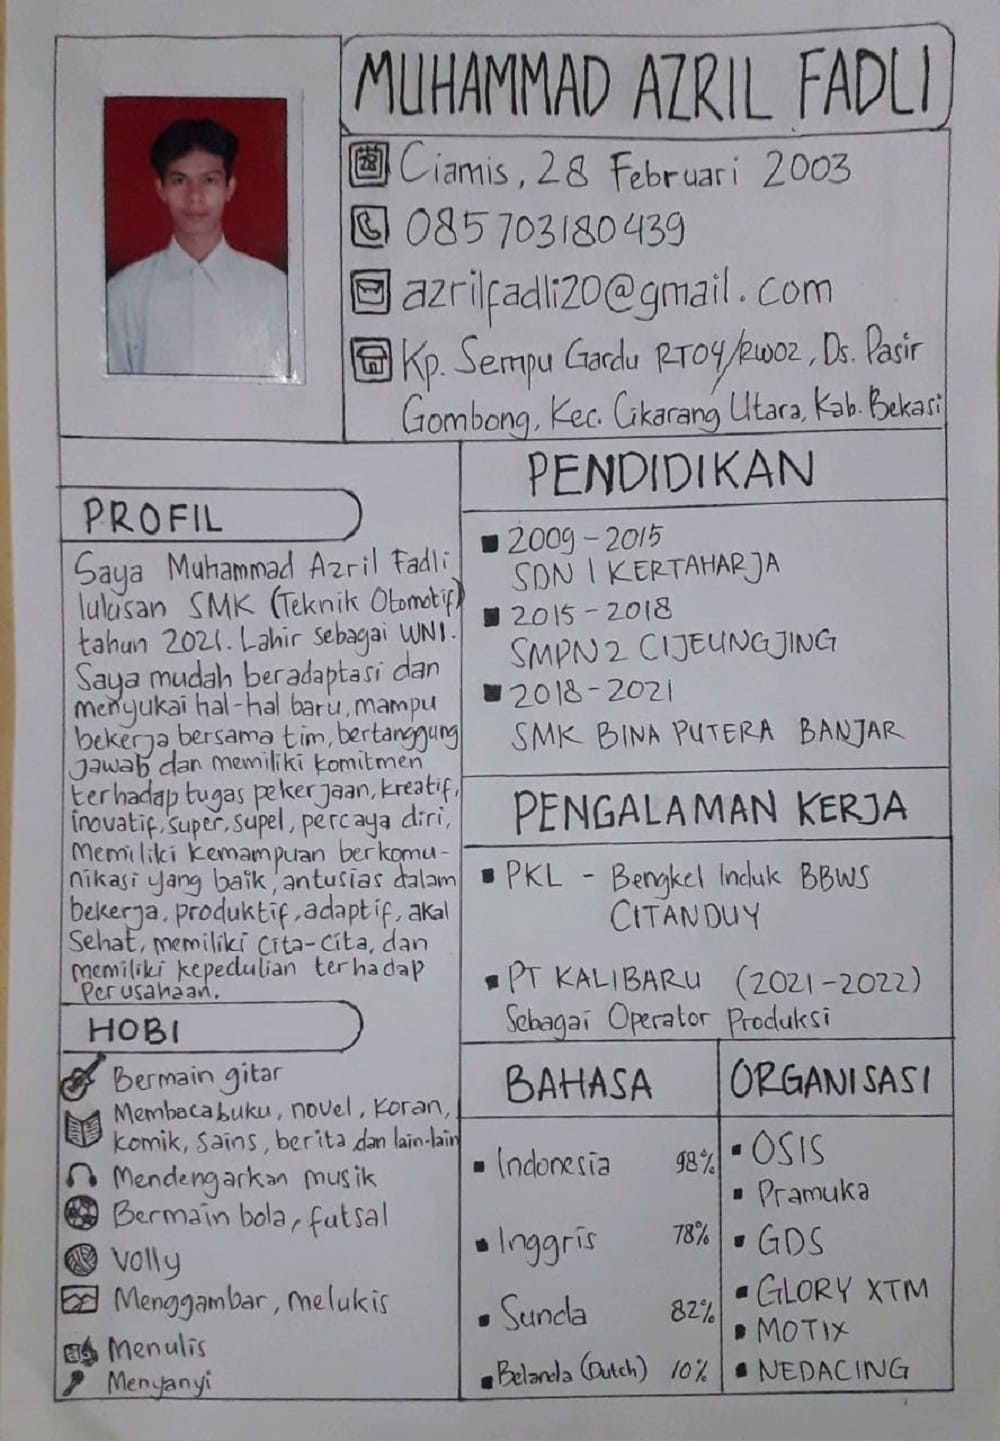 MUHAMMAD AZRIL FADLI
Ciamis, 28 Februari 2003
085703180439
azrilfadli20@gmail.com
Kp. Sempu Gardu RT04/RW02, Ds. Pasir
Gombong, Kec. Cikarang Utara, Kab. Bekasi
PROFIL
Saya Muhammad Azril Fadli
lulusan SMK (Teknik Otomotif)
tahun 2021. Lahir sebagai WNI.
Saya mudah beradaptasi dan
menyukai hal-hal baru, mampu
bekerja bersama tim, bertanggung
jawab dan memiliki komitmen
terhadap tugas pekerjaan, kreatif,
inovatif, super, supel, percaya diri,
memiliki kemampuan berkomu-
nikasi yang baik, antusias dalam
bekerja, produktif, adaptif, akal
sehat, memiliki cita-cita, dan
memiliki kepedulian terhadap
perusahaan.
HOBI
Bermain gitar
Membaca buku, novel, koran,
komik, sains, berita dan lain-lain
Mendengarkan musik
Bermain bola, futsal
Volly
Menggambar, melukis
Menulis
Menyanyi
PENDIDIKAN
2009 - 2015
SDN 1 KERTAHARJA
2015 - 2018
SMPN 2 CIJEUNGJING
2018 - 2021
SMK BINA PUTERA BANJAR
PENGALAMAN KERJA
PKL - Bengkel Induk BBWS
CITANDUY
PT KALIBARU (2021-2022)
Sebagai Operator Produksi
BAHASA
Indonesia 98%
Inggris 78%
Sunda 82%
Belanda (Dutch) 10%
ORGANISASI
OSIS
Pramuka
GDS
GLORY XTM
MOTIX
NEDACING